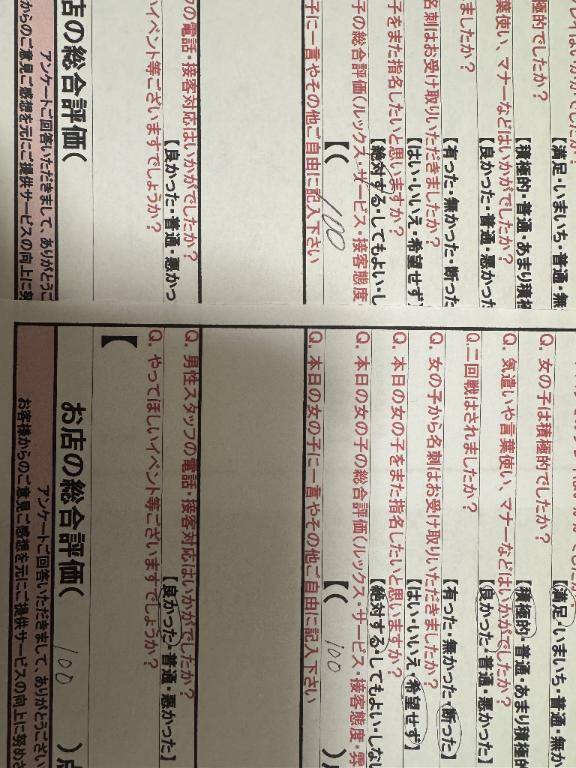 【満足・いまいち・普通・無
極的でしたか？
【積極的・普通・あまり積極
葉使い、マナーなどはいかがでしたか？
【良かった・普通・悪かっ
ましたか？
【有った・無かった・断った
名刺はお受け取りいただきましたか？
【はい・いいえ・希望せず】
子をまた指名したいと思いますか？
【絶対する・してもよい・し
子の総合評価（ルックス・サービス・接客態度・
【（ 100
子に一言やその他ご自由に記入下さい
フの電話・接客対応はいかがでしたか？
【良かった・普通・悪かっ
イベント等ございますでしょうか？
店の総合評価（
アンケートご回答いただきまして、ありがとうご
からのご意見ご感想を元にご提供サービスの向上に努
【満足・いまいち・普通・無か
Q. 女の子は積極的でしたか？
【積極的・普通・あまり積極的
Q. 気遣いや言葉使い、マナーなどはいかがでしたか？
【良かった・普通・悪かった】
Q. 二回戦はされましたか？
【有った・無かった・断った】
Q. 女の子から名刺はお受け取りいただきましたか？
【はい・いいえ・希望せず】
Q. 本日の女の子をまた指名したいと思いますか？
【絶対する・してもよい・しない
Q. 本日の女の子の総合評価（ルックス・サービス・接客態度・雰
【（ 100 ）点
Q. 本日の女の子に一言やその他ご自由に記入下さい
Q. 男性スタッフの電話・接客対応はいかがでしたか？
【良かった・普通・悪かった】
Q. やってほしいイベント等ございますでしょうか？
【
お店の総合評価（ 100 ）点
アンケートご回答いただきまして、ありがとうござい
お客様からのご意見ご感想を元にご提供サービスの向上に努めさ